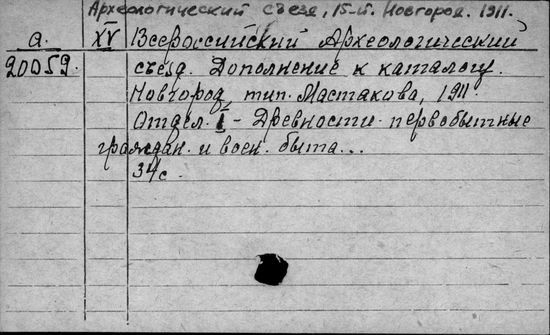 Археологический съезд, 15-й. Новгород. 1911.
а. XV Всероссийский Археологический
20059. съезд. Дополнение к каталогу.
Новгород, тип. Мастакова, 1911.
Отдел. I - Древности первобытные
граждан. и воен. быта...
34с.